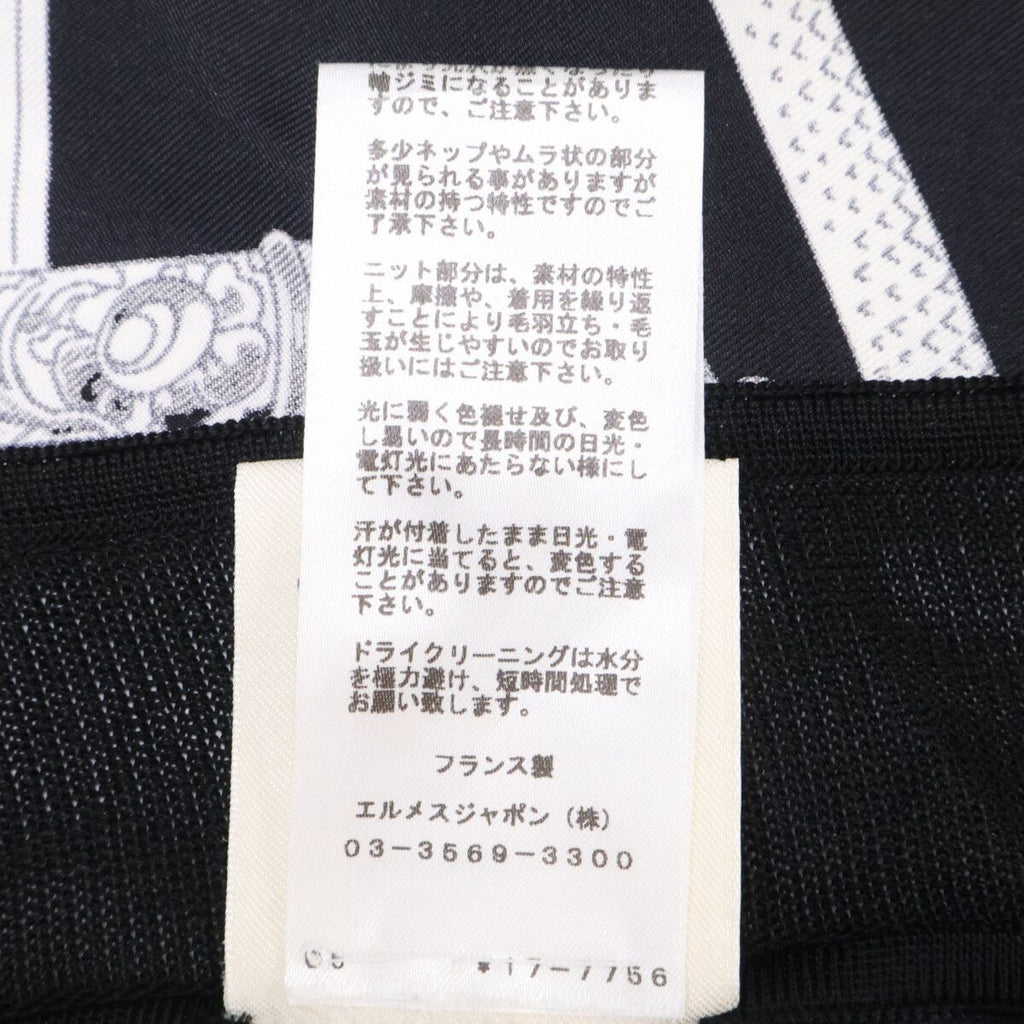 輪ジミになることがありま
すので、ご注意下さい。
多少ネップやムラ状の部分
が見られる事がありますが
素材の持つ特性ですのでご
了承下さい。
ニット部分は、素材の特性
上、摩擦や、着用を繰り返
すことにより毛羽立ち・毛
玉が生じやすいのでお取り
扱いにはご注意下さい。
光に弱く色褪せ及び、変色
し易いので長時間の日光・
電灯光にあたらない様にし
て下さい。
汗が付着したまま日光・電
灯光に当てると、変色する
ことがありますのでご注意
下さい。
ドライクリーニングは水分
を極力避け、短時間処理で
お願い致します。
フランス製
エルメスジャポン（株）
03-3569-3300
05 *17-7756